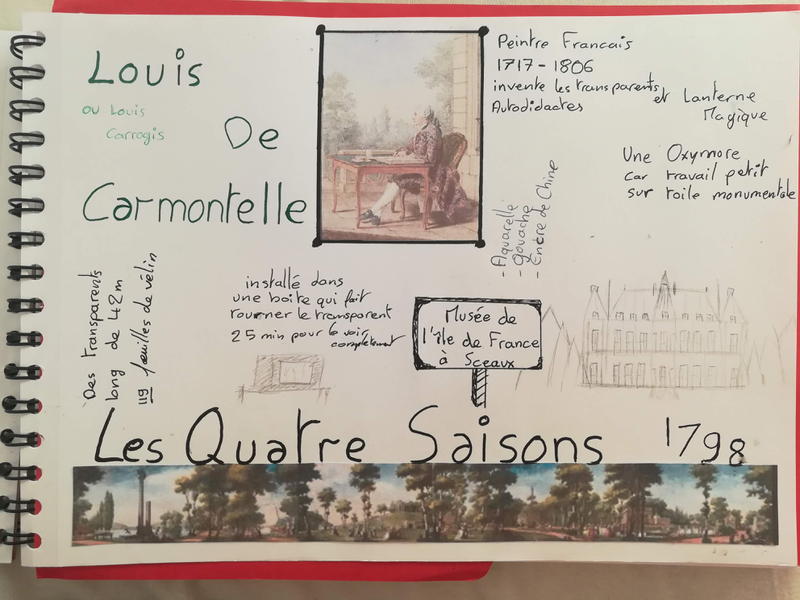 Louis
ou Louis
Carrogis
De
Carmontelle
Peintre Francais
1717 - 1806
invente les transparents
et Lanterne
Magique
Autodidactes
Une Oxymore
car travail petit
sur toile monumentale
- Aquarelle
- Gouache
- Encre de Chine
Des transparents
long de 42m
119 feuilles de vélin
installé dans
une boite qui fait
tourner le transparent
25 min pour le voir
completement
Musée de
l'île de France
à Sceaux
Les Quatre Saisons 1798